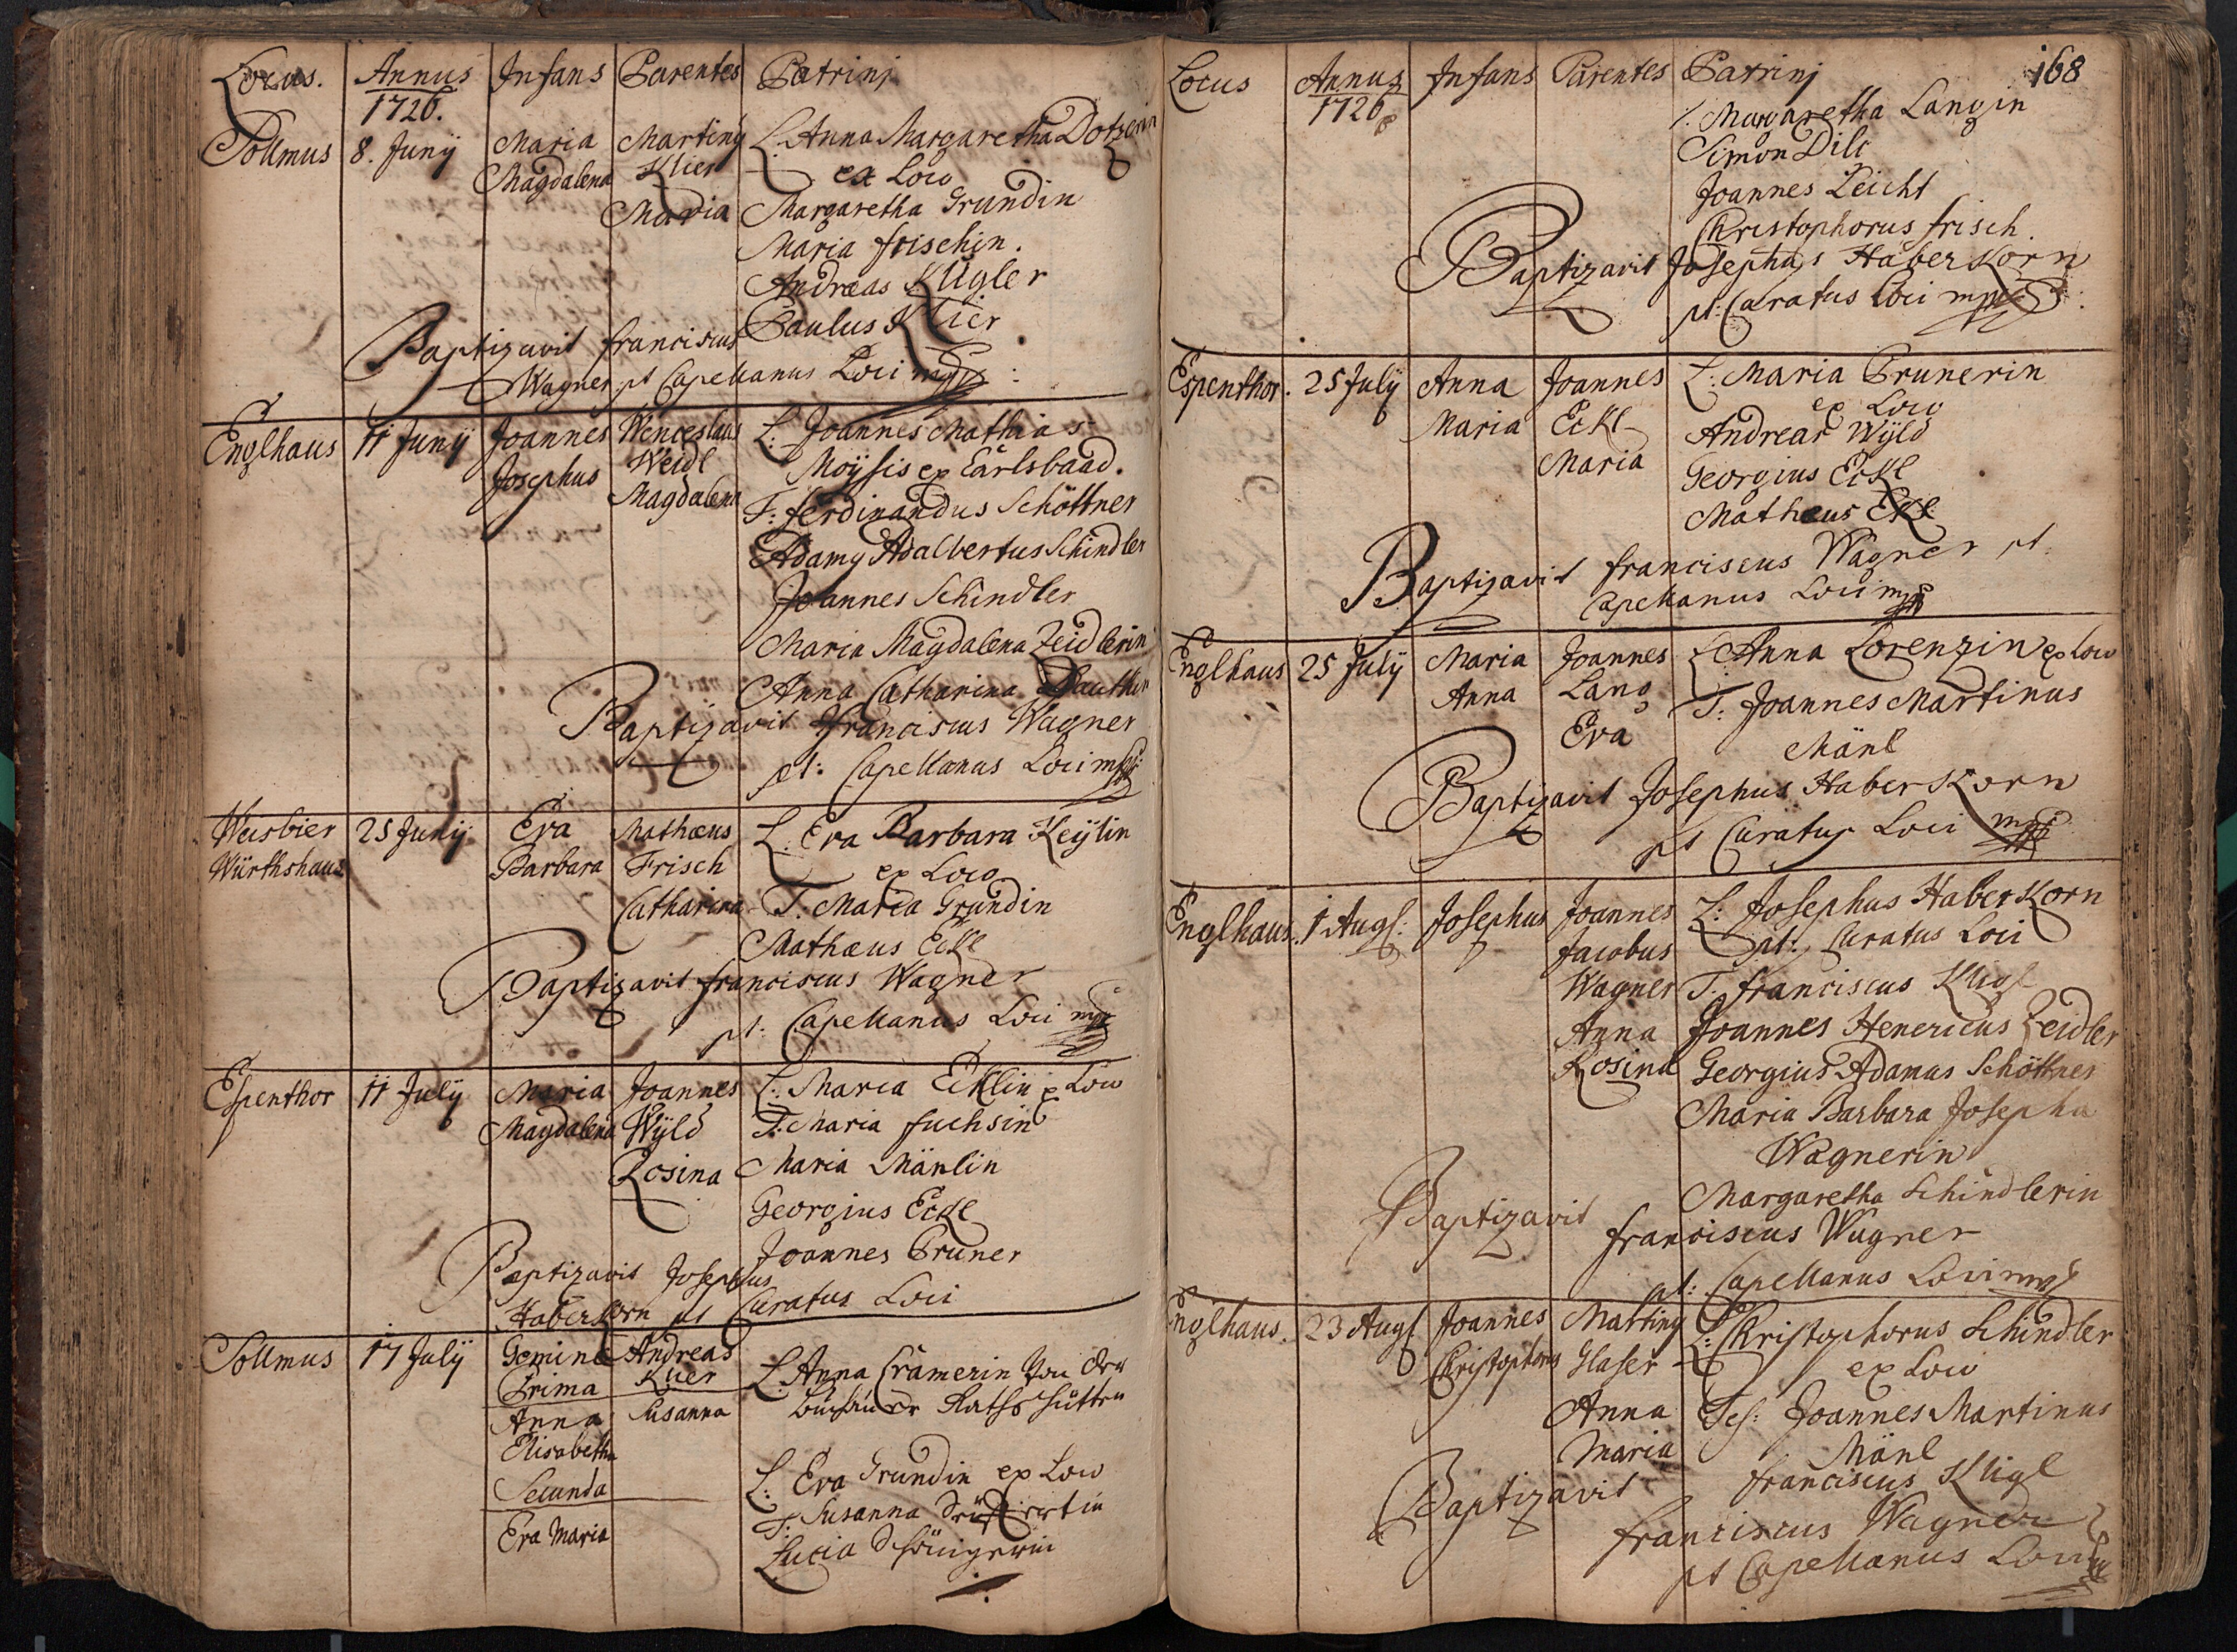 Locus. Annus 1726. Infans Parentes Patrini
Sollmus 8. Junij Maria Martinus L. Anna Margaretha Dotzerin
Magdalena Klier ex Loco
Maria Margaretha Grundin
Maria frischin.
Andreas Kugler
Paulus Klier
Baptizavit franciscus
Wagner pt Capellanus Loci mpp
Englhaus 11 Junij Joannes Wenceslaus L: Joannes Mathias
Josephus Weidl Moÿsis ex Carlsbaad.
Magdalena T: ferdinandus Schöttner
Adamus Adalbertus Schindler
Joannes Schindler
Maria Magdalena Zeidlerin
Anna Catharina
Baptizavit franciscus Wagner
pt: Capellanus Loci mpp
Weisbier 25 Junij Eva Mathæus L. Eva Barbara Keÿlin
Würthshaus Barbara Frisch ex Loco
Catharina T. Maria Grundin
Mathæus Eckl
Baptizavit franciscus Wagner
pt: Capellanus Loci mpp
Espenthor 11 Julij Maria Joannes L: Maria Ecklin ex Loco
Magdalena Wÿld T: Maria fuchsin
Rosina Maria Mänlin
Georgius Eckl
Joannes Pruner
Baptizavit Josephus
Haberkorn pt Curatus Loci
Sollmus 17 Julij Gemine Andreas
Prima Klier L. Anna Cramerin Von der
Anna Susanna
Elisabetha
Secunda L: Eva Grundin ex Loco
Eva Maria T: Susanna
Lucia
Locus Annus 1726 Infans Parentes Patrini 168
T. Margaretha Langin
Simon Dilt
Joannes Leicht
Christophorus frisch.
Baptizavit Josephus Haberkorn
pt: Curatus Loci mpp
Espenthor. 25 Julij Anna Joannes L: Maria Prunerin
Maria Eckl ex Loco
Maria Andreas Wÿld
Georgius Eckl
Mathæus Ekl
Baptizavit franciscus Wagner pt.
Capellanus Loci mpp
Englhaus 25 Julij Maria Joannes L Anna Lorenzin ex Loco
Anna Lang T: Joannes Martinus
Eva Mänl
Baptizavit Josephus Haberkorn
pt Curatus Loci mpp
Englhaus. 1 Augs: Josephus Joannes L: Josephus Haberkorn
Jacobus pt: Curatus Loci
Wagner T. franciscus Kligl
Anna Joannes Henericus Zeidler
Rosina Georgius Adamus Schöttner
Maria Barbara Josepha
Wagnerin
Margaretha Schindlerin
Baptizavit franciscus Wagner
pt: Capellanus Loci mpp
Englhaus. 23 Augs Joannes Martinus L: Christophorus Schindler
Christophorus Glaser ex Loco
Anna Tes: Joannes Martinus
Maria Mänl
franciscus Kligl
Baptizavit
franciscus Wagner
pt Capellanus Loci